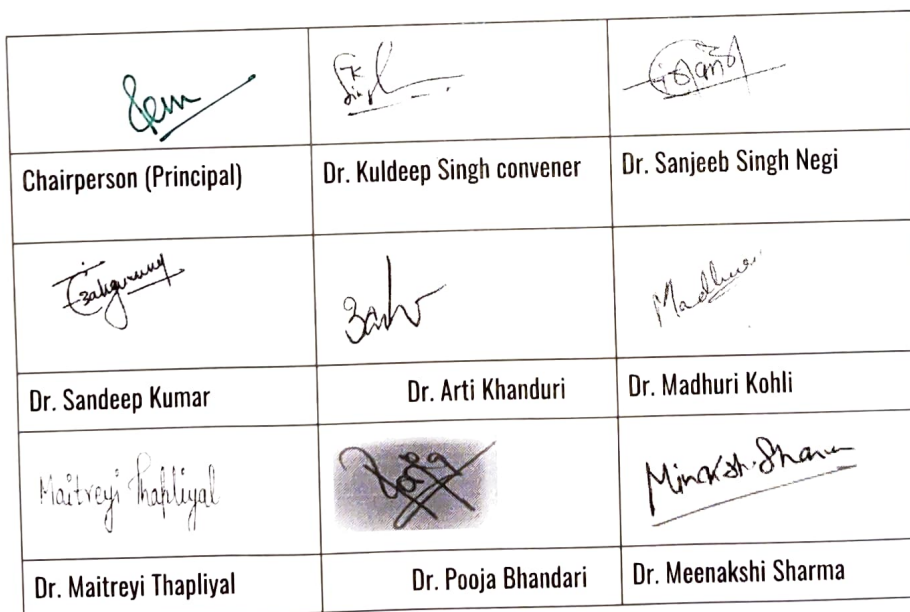 K
Singh
Chairperson (Principal) Dr. Kuldeep Singh convener Dr. Sanjeeb Singh Negi
Madhuri
Dr. Sandeep Kumar Dr. Arti Khanduri Dr. Madhuri Kohli
Maitreyi Thapliyal Minakshi Sharma
Dr. Maitreyi Thapliyal Dr. Pooja Bhandari Dr. Meenakshi Sharma